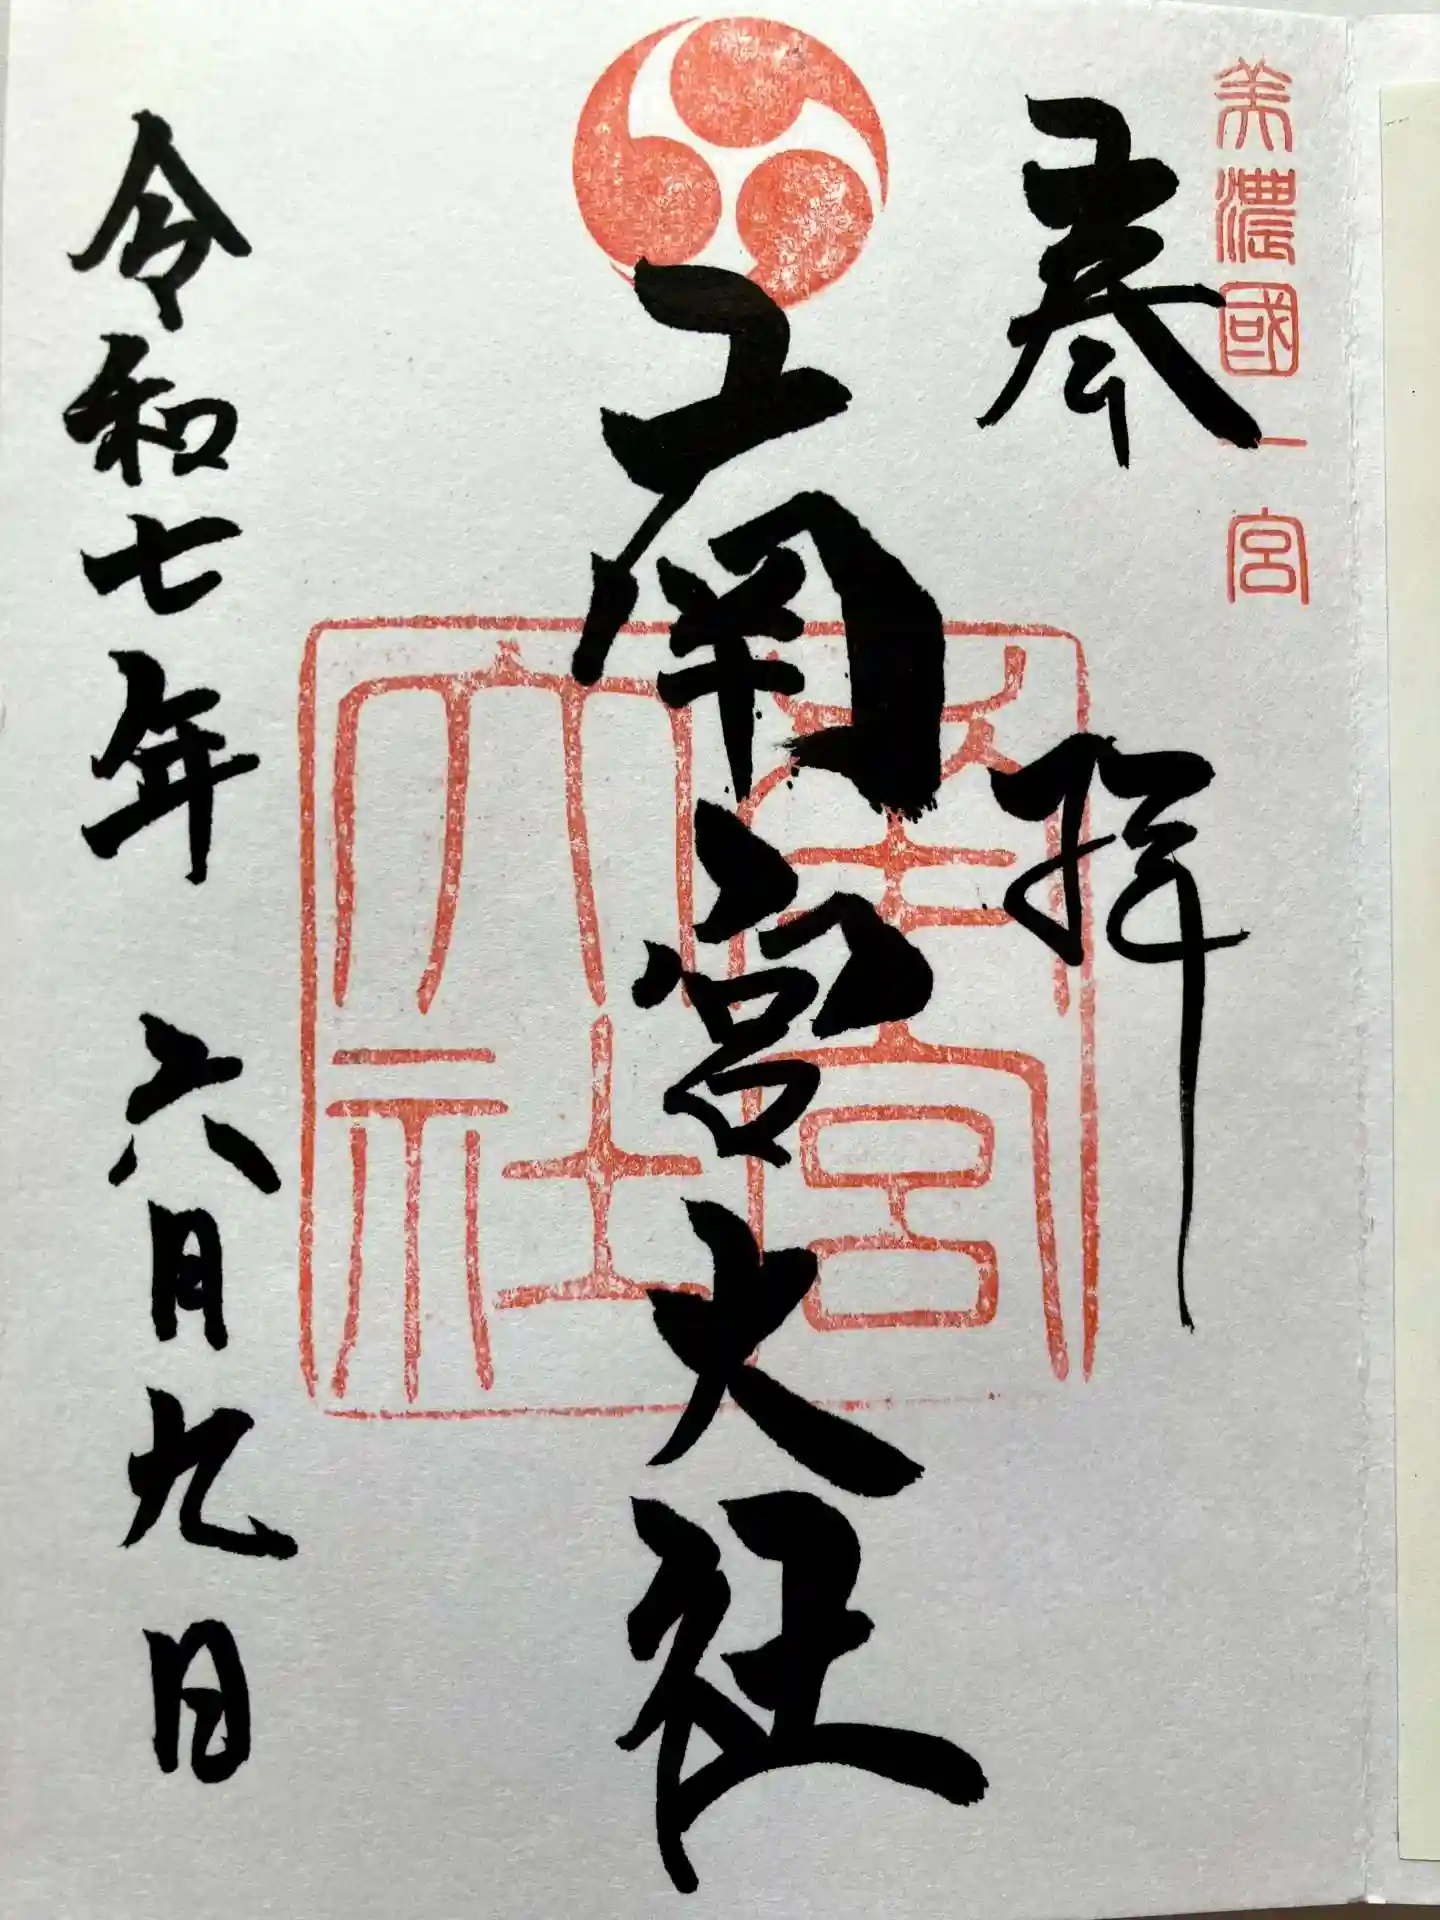 美濃國一宮
奉拝
南宮大社
南宮
大社
令和七年六月九日